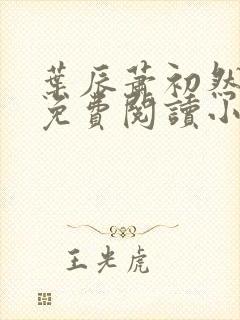 葉辰蕭初然
免費閱讀小
王光虎